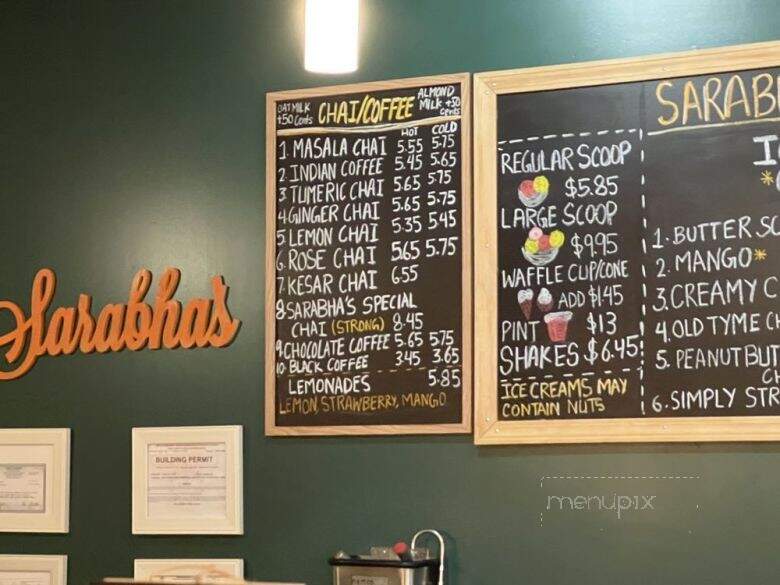 OAT MILK +50 Cents
CHAI/COFFEE
ALMOND MILK +50 Cents
HOT COLD
1. MASALA CHAI 5.55 5.75
2. INDIAN COFFEE 5.45 5.65
3 TUMERIC CHAI 5.65 5.75
4 GINGER CHAI 5.65 5.75
5 LEMON CHAI 5.35 5.45
6. ROSE CHAI 5.65 5.75
7. KESAR CHAI 6.55
8 SARABHA'S SPECIAL
CHAI (STRONG) 8.45
9 CHOCOLATE COFFEE 5.65 5.75
10. BLACK COFFEE 3.45 3.65
LEMONADES 5.85
LEMON, STRAWBERRY, MANGO
REGULAR SCOOP
$5.85
LARGE SCOOP
$9.95
WAFFLE CUP/CONE
ADD $1.45
PINT $13
SHAKES $6.45
ICE CREAMS MAY
CONTAIN NUTS
SARAB
I
*
1. BUTTER SC
2. MANGO*
3. CREAMY C
4. OLD TYME CH
5. PEANUT BUT
CH
6. SIMPLY STR
Sarabha's
BUILDING PERMIT
menupix